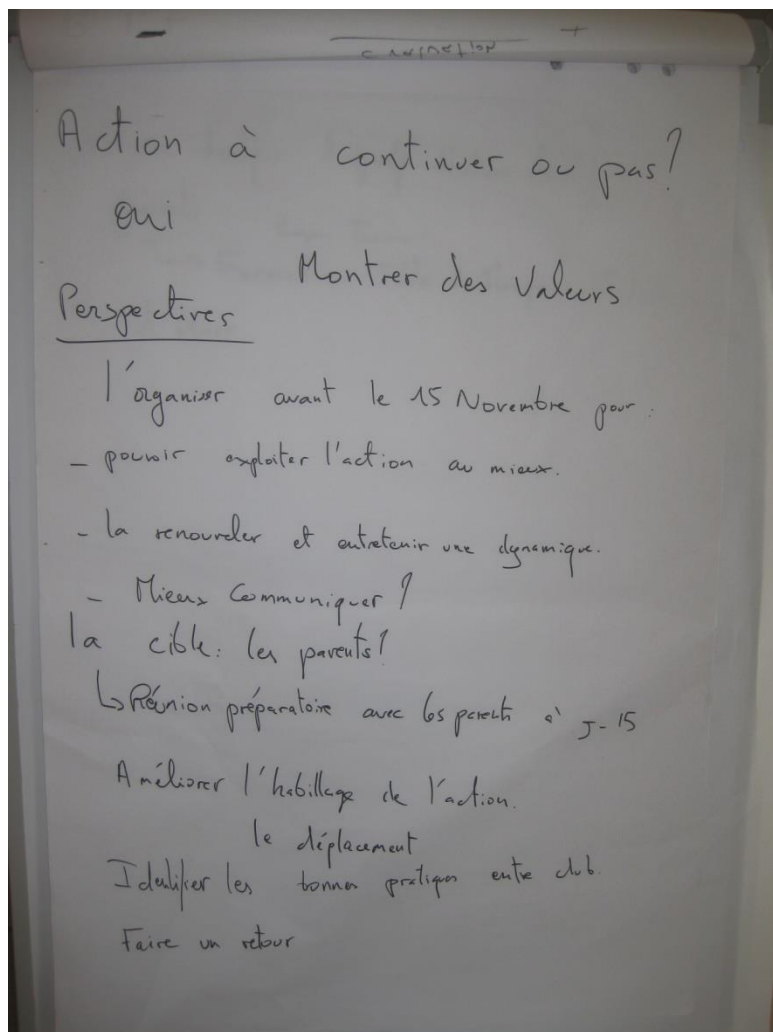 - +
Action à continuer ou pas?
oui
Montrer des Valeurs
Perspectives
l'organiser avant le 15 Novembre pour :
- pouvoir exploiter l'action au mieux.
- la renouveler et entretenir une dynamique.
- Mieux Communiquer ?
la cible : les parents ?
↳ Réunion préparatoire avec les parents à J-15
Améliorer l'habillage de l'action.
le déplacement
Identifier les bonnes pratiques entre club.
Faire un retour